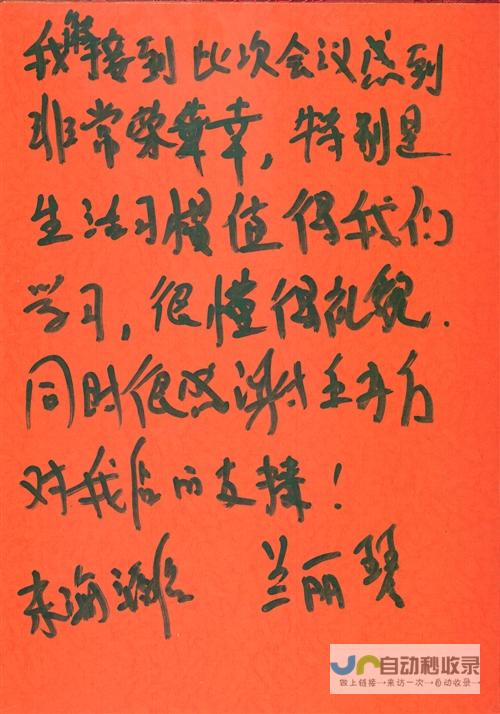 我接到此次会议感到
非常荣華幸，特别是
生活习惯值得我们
学习，很懂得礼貌.
同时很感谢主办方
对我店的支！
兰丽琴
自动秒收录
做上链接→来访一次→自动收录